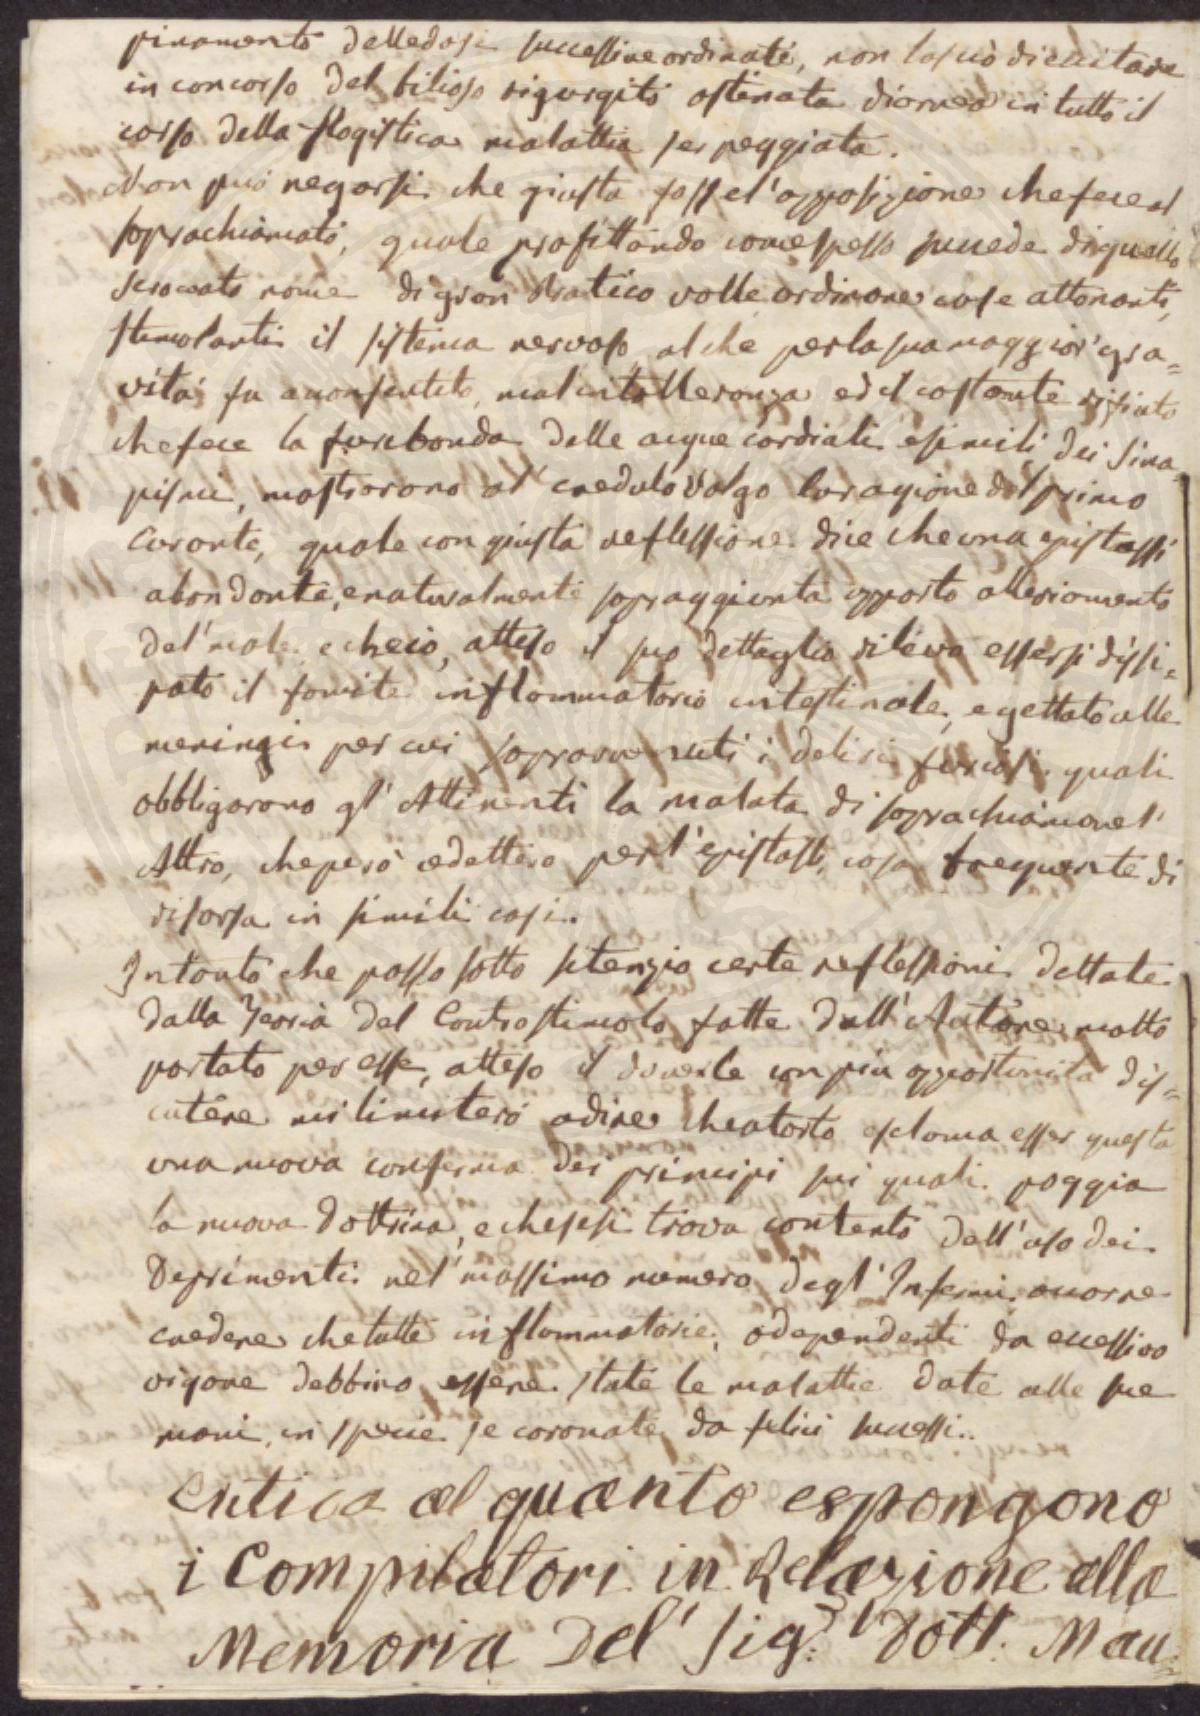 pinamento delle dosi successive ordinate, non lasciò di eccitare
in concorso del bilioso rigurgito ostinata diarrea in tutto il
corso della flogistica malattia ser peggiata.
Non può negarsi che giusta foss el' opposizione che fece al
soprachiamato, quale profittando come spesso succede di quello
scroccato nome di gran Pratico volle ordinare cose attonanti,
stimolanti il sistema nervoso, al che per la sua maggior' gra=
vita' fu acconsentito, mal' intolleranza ed il costante rifiuto
che fece la furibonda delle acque cordiali e simili dei Sina
pismi, mostrorono al' credulo Volgo la ragione del primo
Curante, quale con giusta reflessione dice che una epistassi
abondante, e naturalmente sopraggiunta apportò allegiamento
del' male, e che ciò, atteso il suo dettaglio rileva essersi dissi=
pato il fomite inflammatorio intestinale, e gettato alle
meningi per cui sopravvenuti i deliri furiosi quali
obbligorono gl' Attinenti la malata di soprachiamare l'
Altro, che però cedettero per l' epistassi, cosa frequente di
risorsa in simili casi.
Intanto che passo sotto silenzio certe reflessioni dettate
dalla Teoria del Controstimolo fatte dall' Autore molto
portato per esse, atteso il doverle con più opportunità dis=
cutere mi limiterò a dire che a torto esclama esser questa
una nuova conferma dei principj sui quali poggia
la nuova dottrina, e che se si trova contento dell' uso dei
Deprimenti nel' massimo numero degl' Infermi, occorre
credere che tutte inflammatorie, o dependenti da eccessivo
vigore debbino essere state le malattie date alle sue
mani, in specie se coronate da felici successi.
Critica al quanto espongono
i Compilatori in Relazione alla
Memoria Del' Sig.r Dott. Mau=